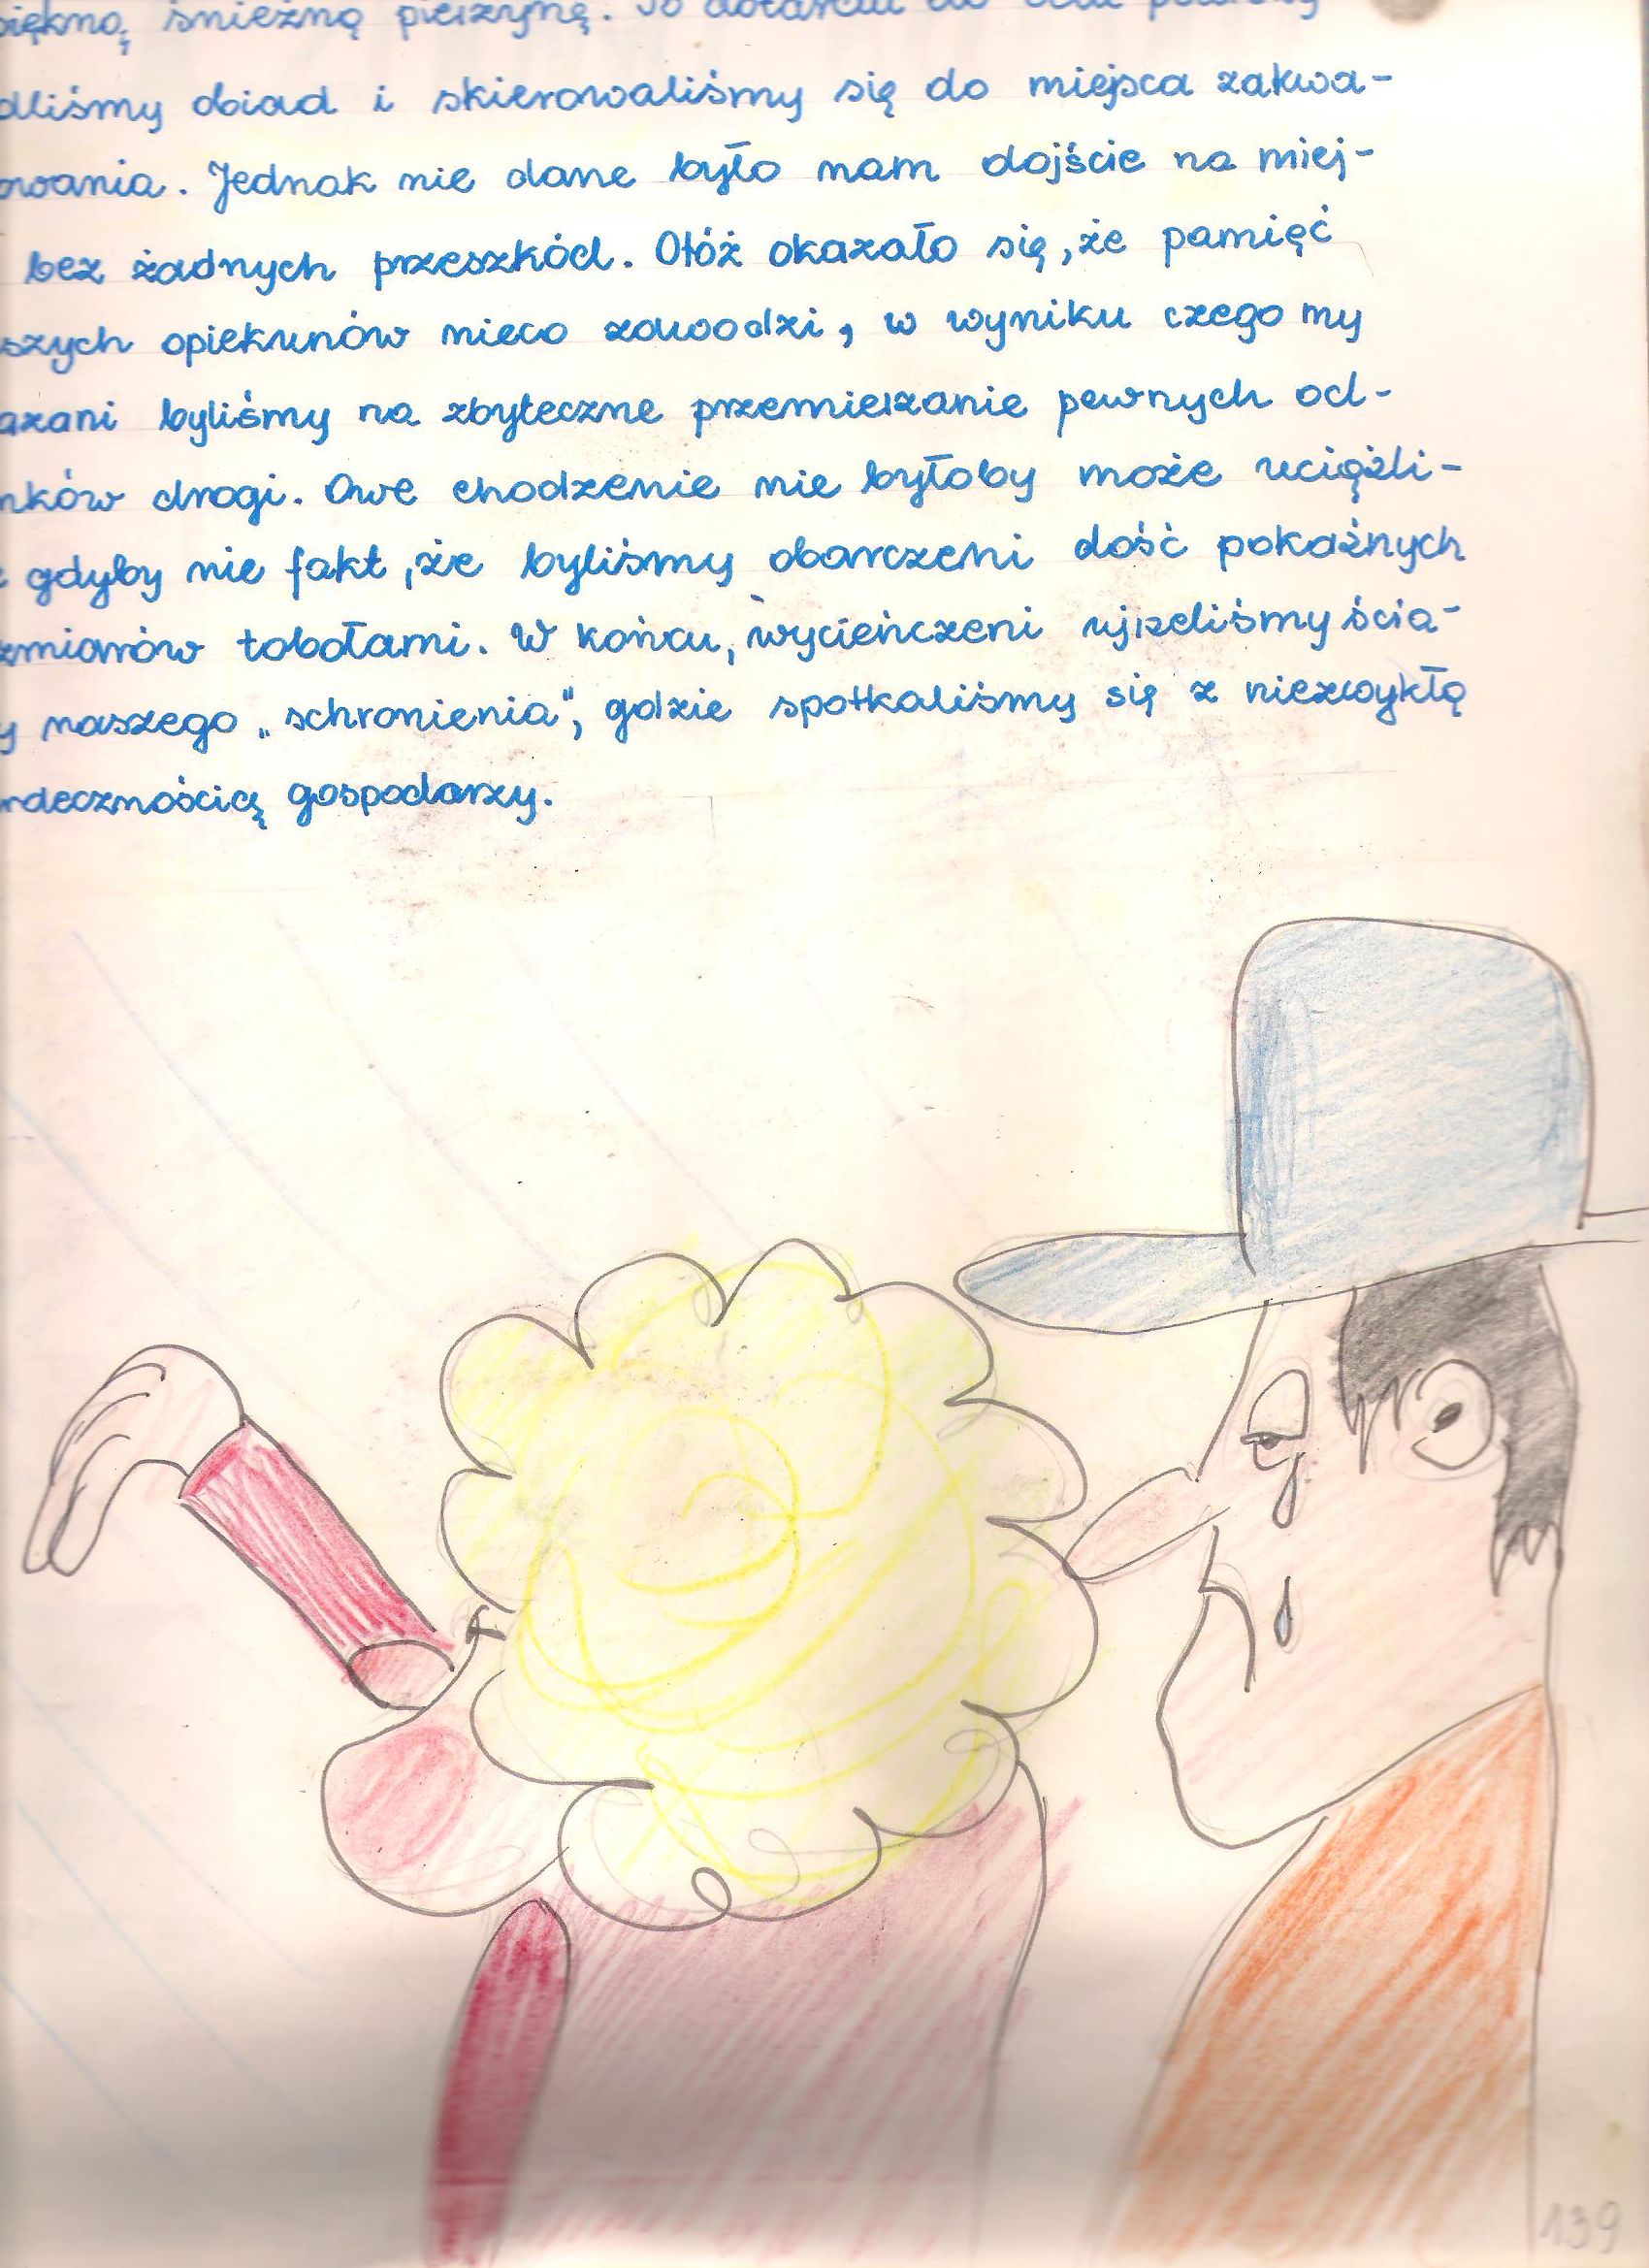 piękną, śnieżną pierzynę. Po dotarciu do celu
dliśmy obiad i skierowaliśmy się do miejsca zakwa-
owania. Jednak nie dane było nam dojście na miej-
bez żadnych przeszkód. Otóż okazało się, że pamięć
szych opiekunów nieco zawodzi, w wyniku czego my
azani byliśmy na zbyteczne przemierzanie pewnych od-
nków drogi. Owe chodzenie nie byłoby może uciążli-
gdyby nie fakt, że byliśmy obarczeni dość pokaźnych
zmiarów tobołami. W końcu, wycieńczeni ujrzeliśmy ścia-
y naszego „schronienia", gdzie spotkaliśmy się z niezwykłą
rdecznością gospodarzy.
139